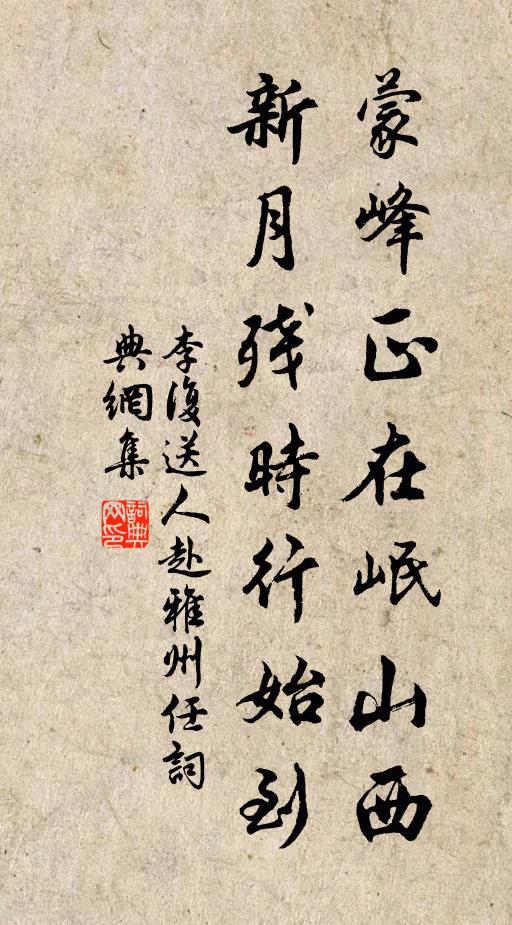 蒙峰正在岷山西
新月殘時行始到
李復送人赴雅州任詞
典網集
詞典
网印